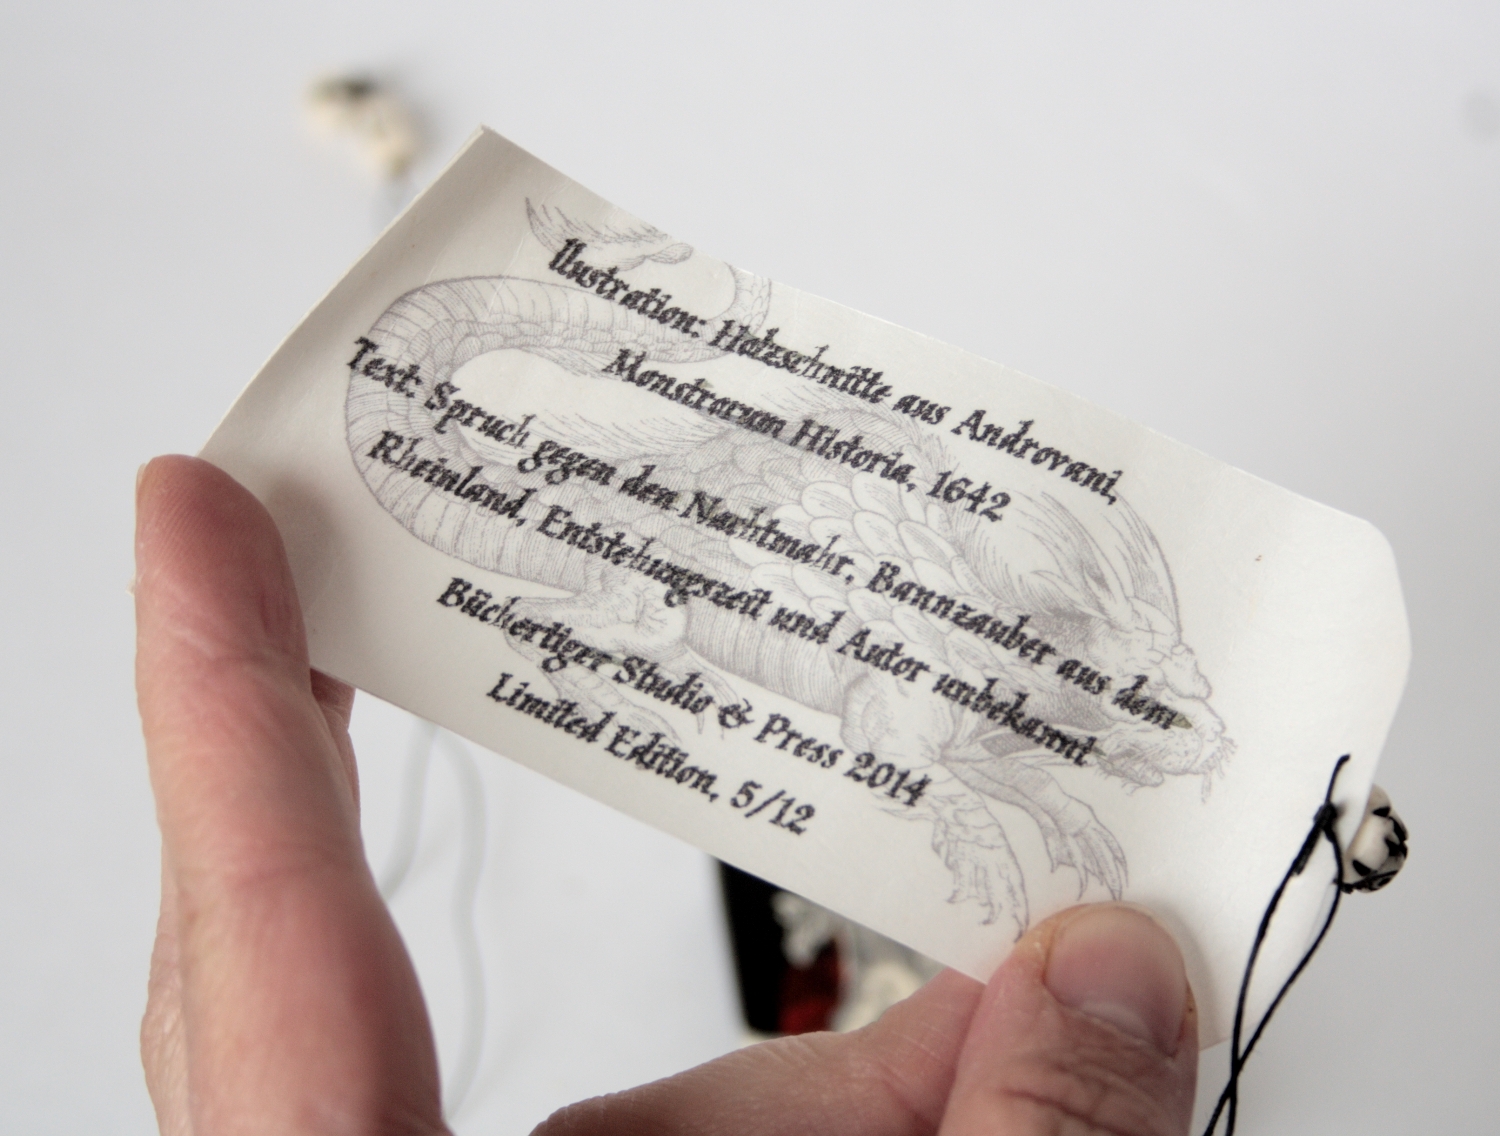 Ilustration: Holzschnitte aus Androvani,
Monstrorum Historia, 1642
Text: Spruch gegen den Nachtmahr, Bannzauber aus dem
Rheinland, Entstehungszeit und Autor unbekannt
Büchertiger Studio & Press 2014
Limited Edition, 5/12